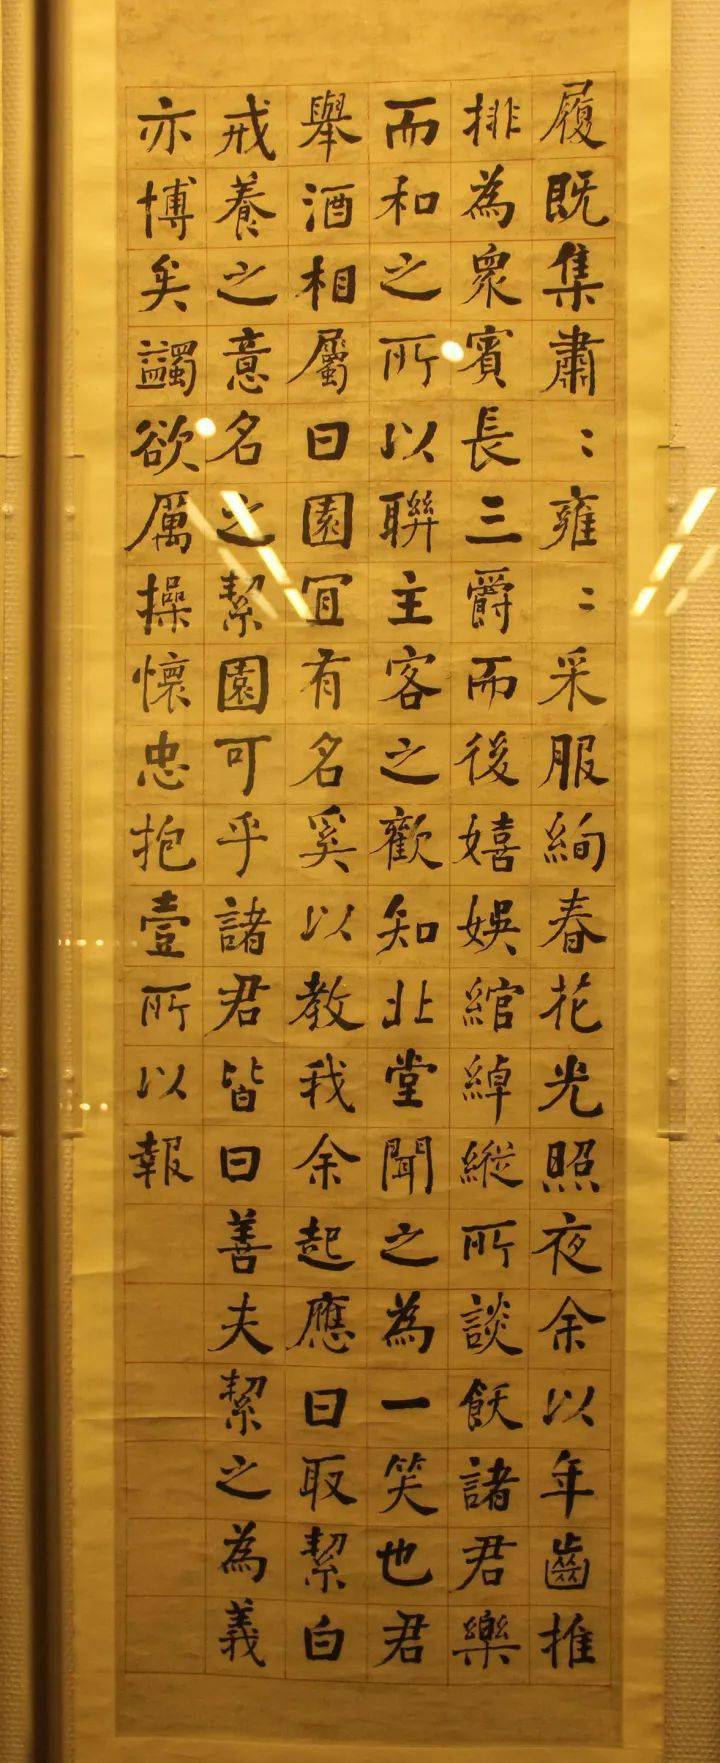 履既集肅〻雍〻采服絢春花光照夜余以年齒推
排為眾賓長三爵而後嬉娛綰綽縱所談飫諸君樂
而和之所以聯主客之歡知北堂聞之為一笑也君
舉酒相屬曰園宜有名奚以教我余起應曰取絜白
戒養之意名之絜園可乎諸君皆曰善夫絜之為義
亦博矣蠲欲厲操懷忠抱壹所以報